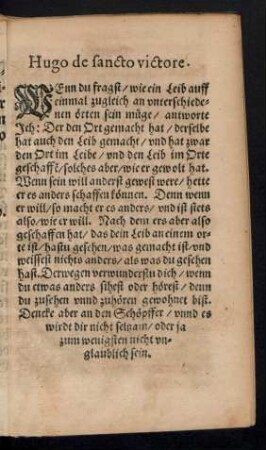 Hugo de sancto victore.
WEnn du fragst / wie ein Leib auff
einmal zugleich an vnterschiede-
nen örten sein müge / antworte
Ich: Der den Ort gemacht hat / derselbe
hat auch den Leib gemacht / vnd hat zwar
den Ort im Leibe / vnd den Leib im Orte
geschaffẽ / solches aber / wie er gewolt hat.
Wenn sein will anderst gewest were / hette
er es anders schaffen können. Denn wenn
er will / so macht er es anders / vnd ist stets
also / wie er will. Nach dem ers aber also
geschaffen hat / das dein Leib an einem or-
te ist / hastu gesehen / was gemacht ist / vnd
weissest nichts anders / als was du gesehen
hast. Derwegen verwunderstu dich / wenn
du etwas anders sihest oder hörest / denn
du zusehen vnnd zuhören gewohnet bist.
Dencke aber an den Schöpffer / vnnd es
wirdt dir nicht selzam / oder ja
zum wenigsten nicht vn-
glaublich sein.